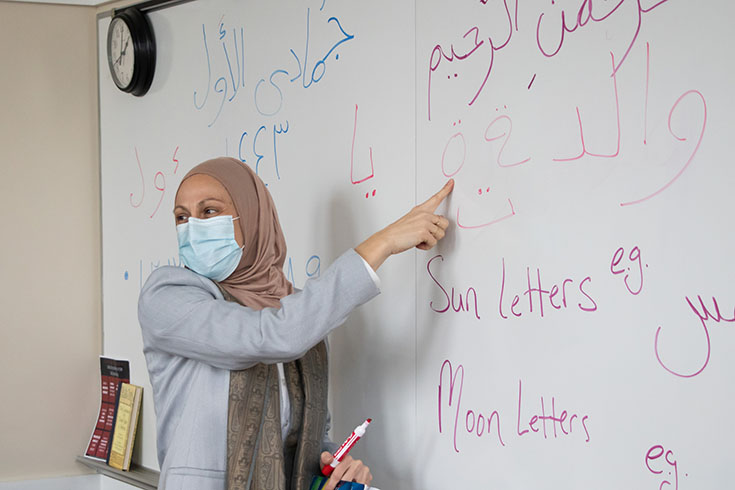 جمادى الأول
٤٤٣
يا
أول
الرحيم
والدة ة
ت
Sun letters eg.
Moon letters
eg.